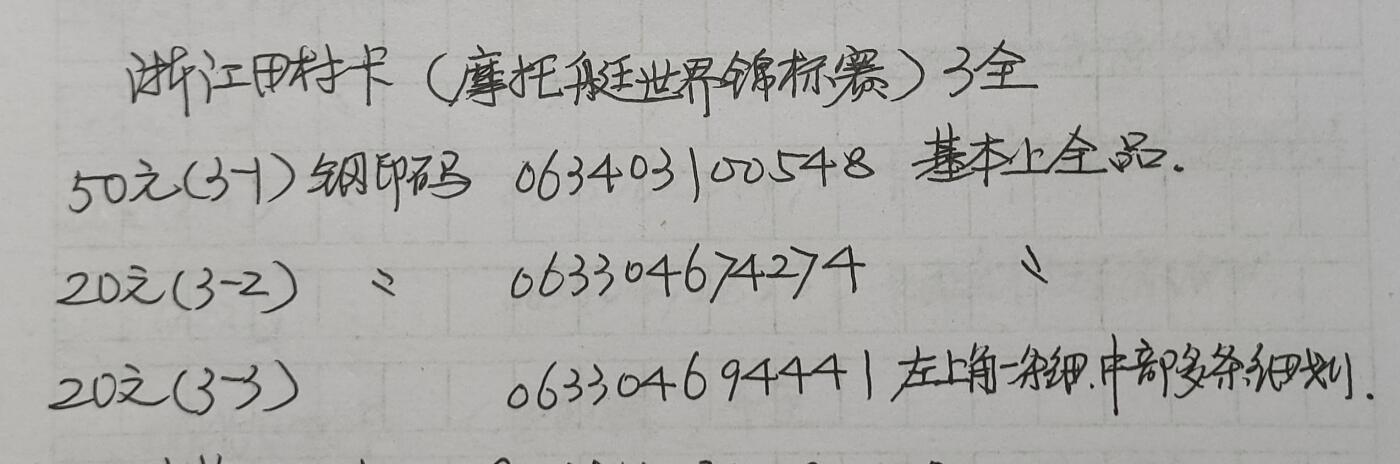 浙江田村卡（摩托艇世界锦标赛）3全
50元(3-1) 钢印码 063403100548 基本上全品.
20元(3-2) 〃 063304674274 〃
20元(3-3) 063304694441 左上角一条细.中部多条细划.